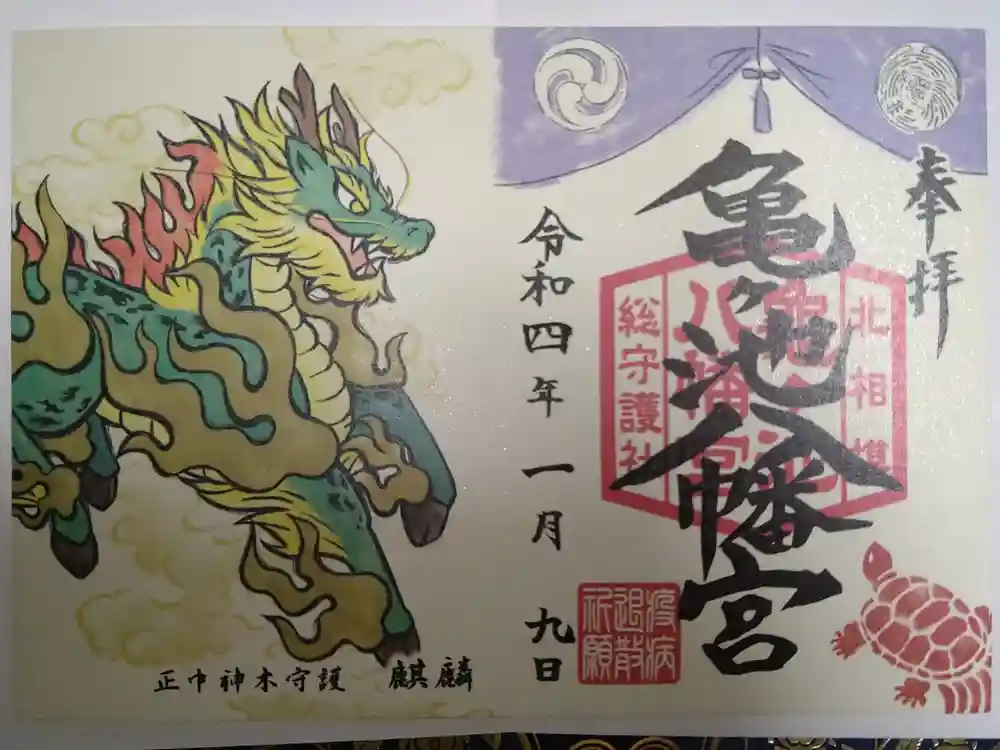 奉拝
亀ヶ池八幡宮
北相模
亀ヶ池
八幡宮
総守護社
令和四年 一月 九日
疫病
退散
祈願
正中神木守護 麒麟